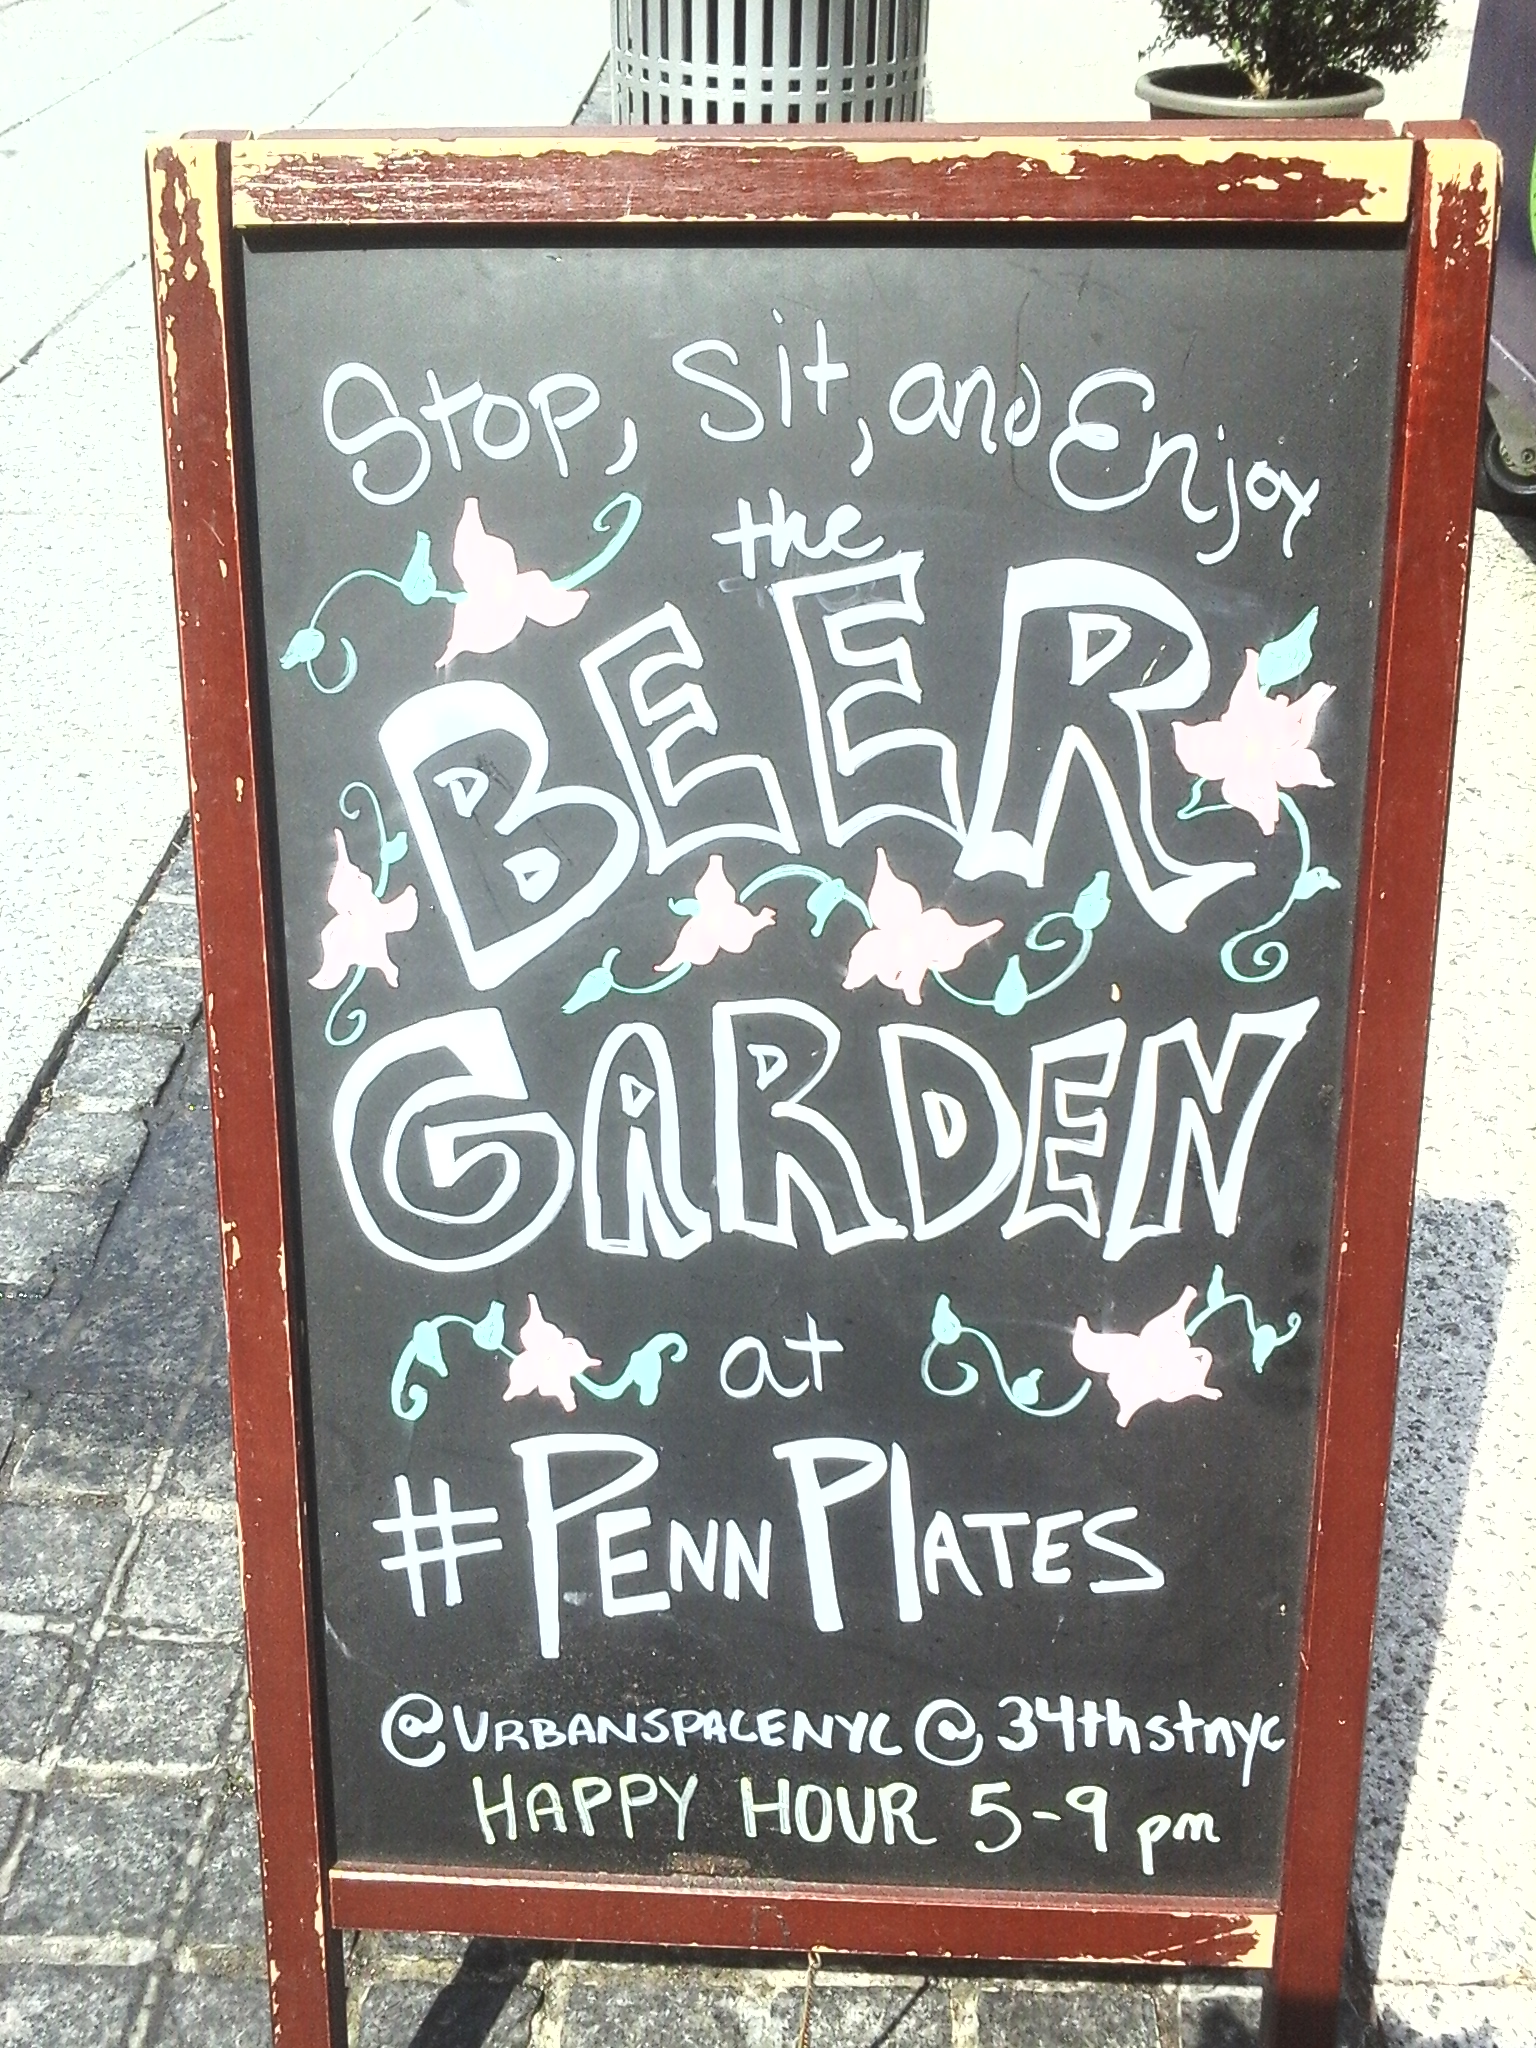 Stop, Sit, and Enjoy
the
BEER
GARDEN
at
#PENNPLATES
@URBANSPACENYC @34thstnyc
HAPPY HOUR 5-9 pm